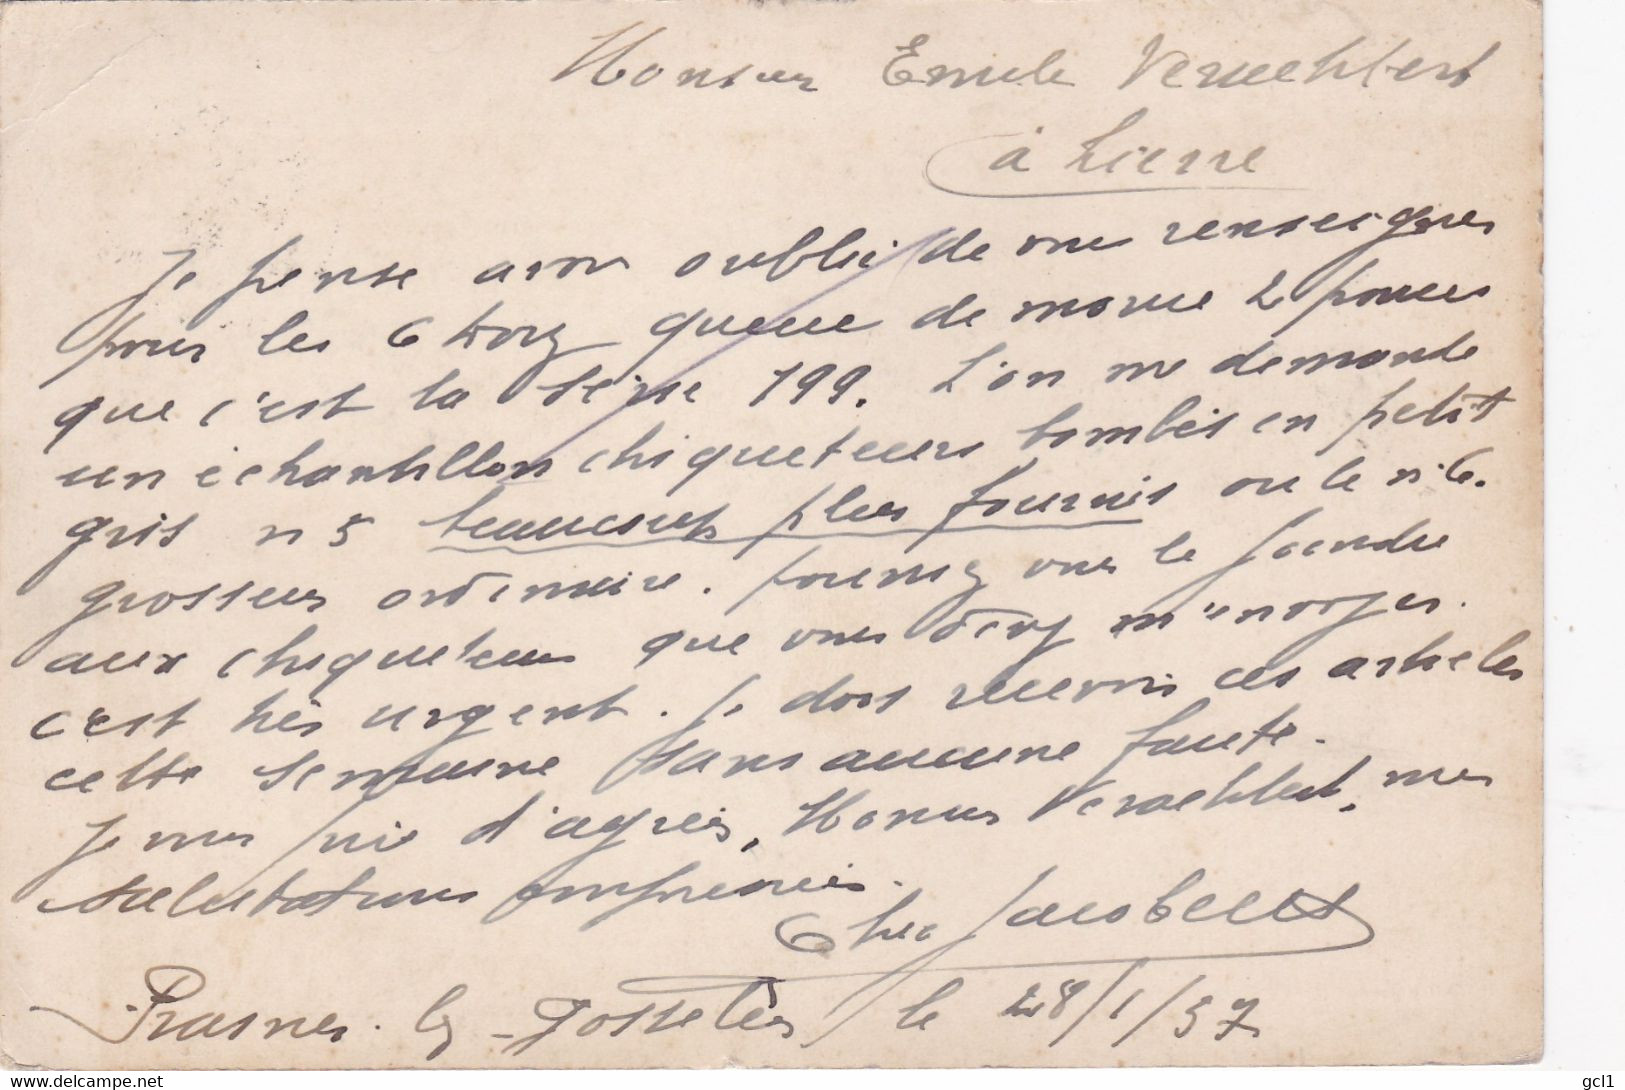 Monsieur Emile Veraechtert
à Lierre
Je pense avoir oublié de vous renseigner
pour les 6 douz queue de morue 2 pouces
que c'est la série 199. L'on me demande
un échantillon chiqueteurs bombés en petit
gris n 5 beaucoup plus fournis ou le n° 6.
grosseur ordinaire. pourriez vous le joindre
aux chiqueteurs que vous devez m'envoyer.
c'est très urgent. Je dois recevoir ces articles
cette semaine sans aucune faute.
Je vous prie d'agréer, Monsieur Veraechtert, mes
salutations empressées.
Jacobeets
Frasnes - lez - Gosselies le 28/1/37
gcl1